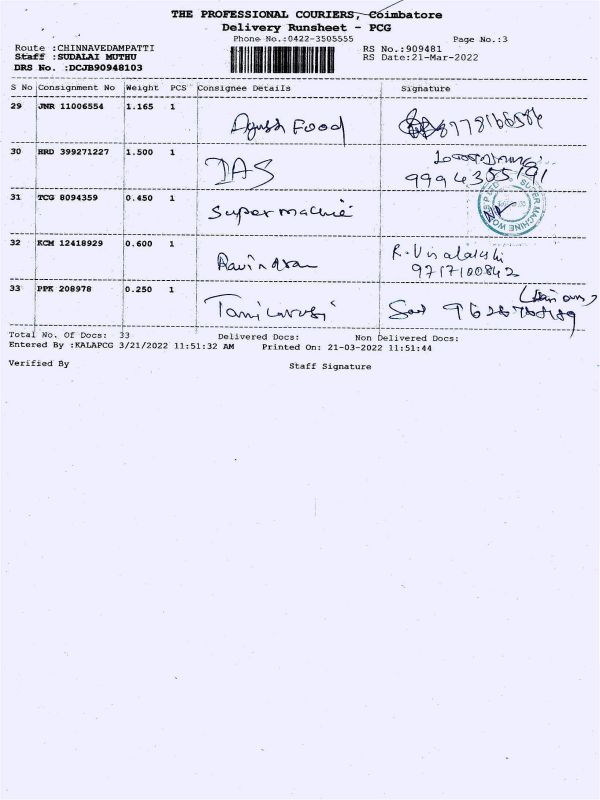 THE PROFESSIONAL COURIERS, Coimbatore
Delivery Runsheet - PCG
Phone No.:0422-3505555 Page No.:3
Route :CHINNAVEDAMPATTI RS No.:909481
Staff :SUDALAI MUTHU RS Date:21-Mar-2022
DRS No. :DCJB90948103
S No Consignment No Weight PCS Consignee Details Signature
29 JNR 11006554 1.165 1
Food
30 HRD 399271227 1.500 1
DAS 9994355791
31 TCG 8094359 0.450 1
Super machie SUPER MACHINE WORKS
32 KCM 12418929 0.600 1
R. Visalakshi
9717100842
33 PPK 208978 0.250 1
Total No. Of Docs: 33 Delivered Docs: Non Delivered Docs:
Entered By :KALAPCG 3/21/2022 11:51:32 AM Printed On: 21-03-2022 11:51:44
Verified By Staff Signature